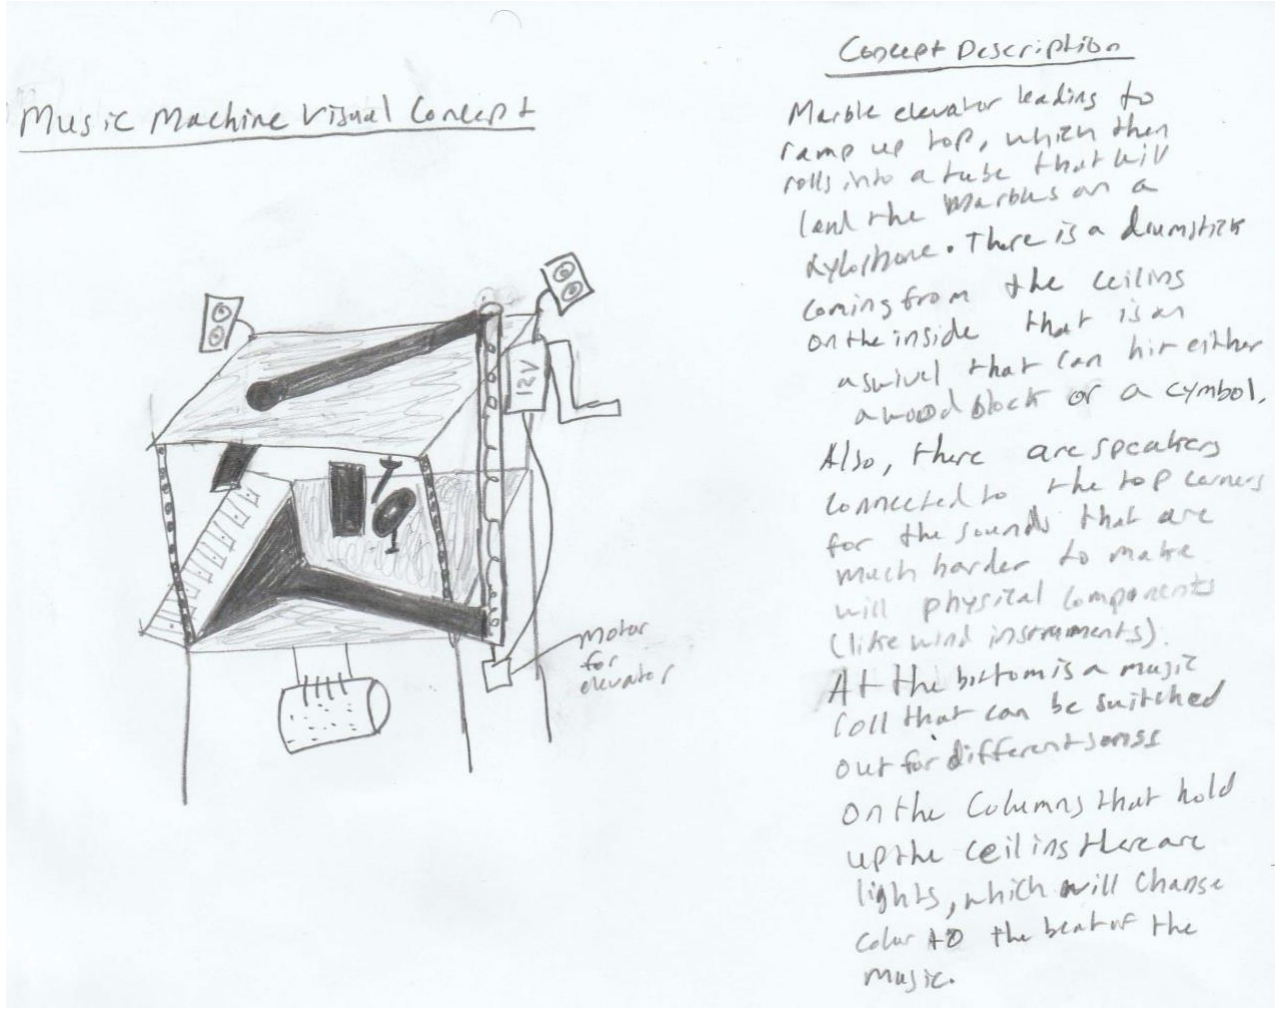 Music Machine Visual Concept
12V
Motor
for
elevator
Concept Description
Marble elevator leading to
ramp up top, which then
rolls into a tube that will
land the marbles on a
xylophone. There is a drumstick
coming from the ceiling
on the inside that is on
a swivel that can hit either
a wood block or a cymbol.
Also, there are speakers
connected to the top corners
for the sounds that are
much harder to make
will physical components
(like wind instruments).
At the bottom is a music
roll that can be switched
out for different songs
On the columns that hold
up the ceiling there are
lights, which will change
color to the beat of the
music.